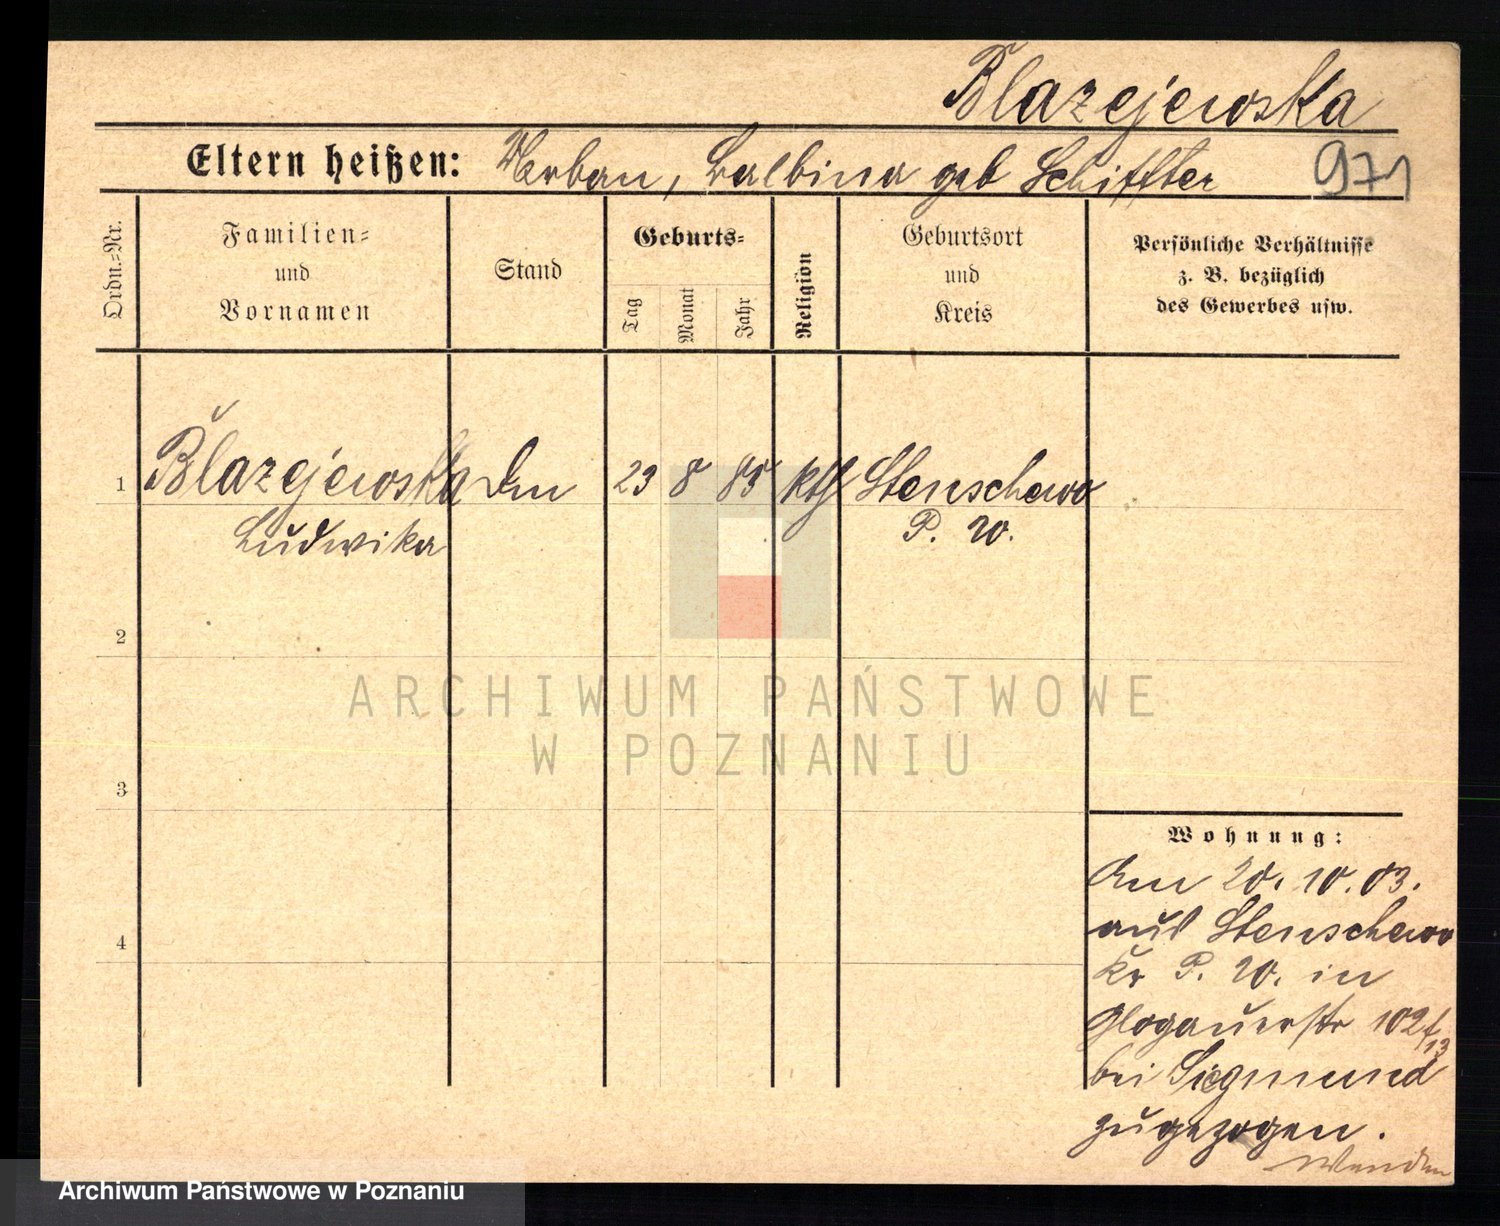 Blazejewska
Eltern heißen: Urban, Balbina geb Schiffter
971
Ordn.-Nr.
Familien- und Vornamen
Stand
Geburts-
Tag
Monat
Jahr
Religion
Geburtsort und Kreis
Persönliche Verhältnisse
z. B. bezüglich
des Gewerbes usw.
1 Blazejewska 23 8 85 kth Stenschewo
Ludwika P. W.
2
ARCHIWUM PAŃSTWOWE
W POZNANIU
3
Wohnung:
Am 20. 10. 03.
aus Stenschewo
4
Kr P. W. in
Glogauerstr 102f
13
bei Sigmund
zugezogen.
Wenden
Archiwum Państwowe w Poznaniu